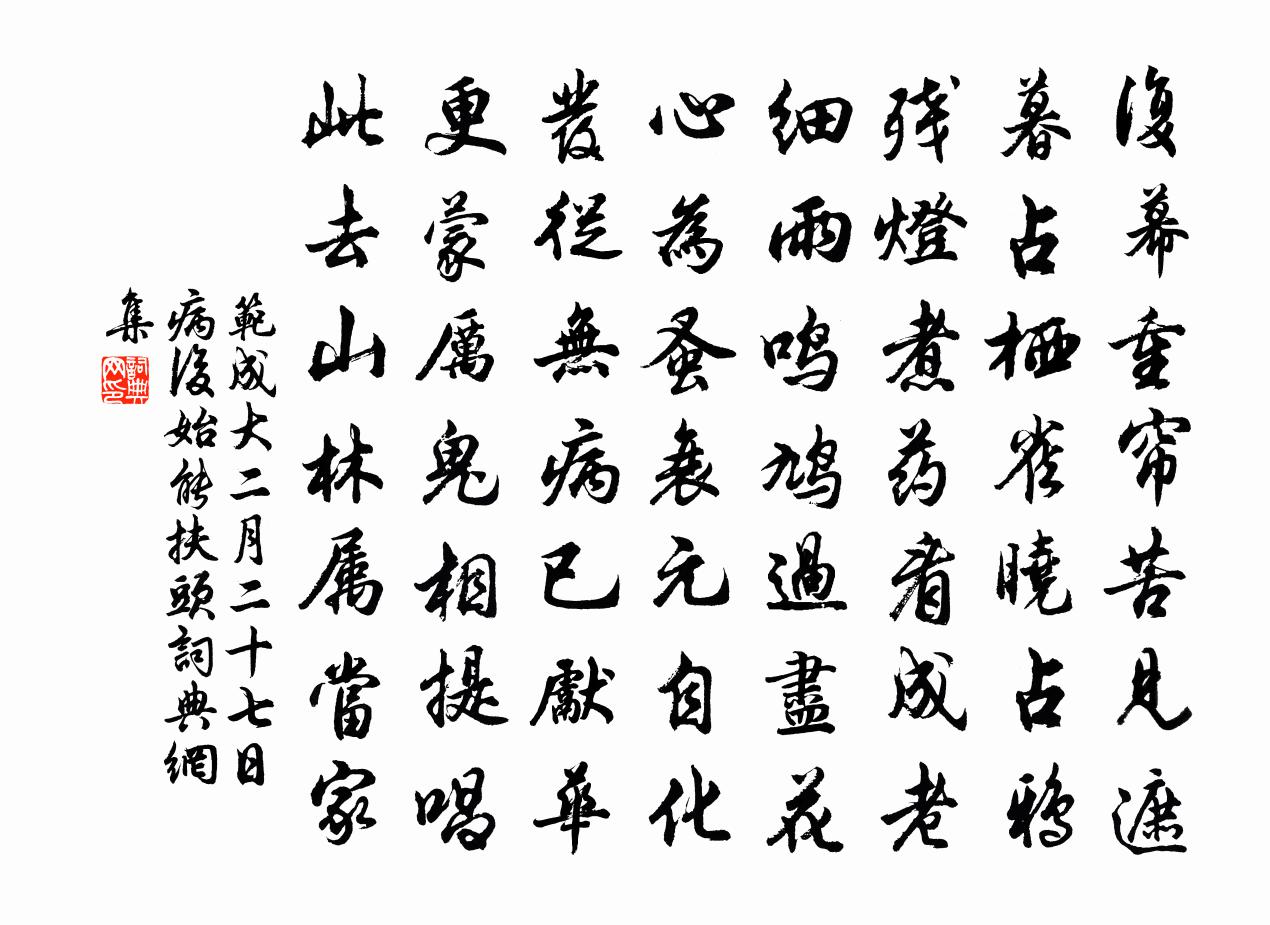 復幕重帘苦見遮
暮占栖雀曉占鸦
残燈煮药看成老
细雨鸣鸠過盡花
心為蚤衰元自化
發從無病已獻華
更蒙厲鬼相提唱
此去山林属當家
範成大二月二十七日
病後始能扶頭詞典網
集
詞典网印